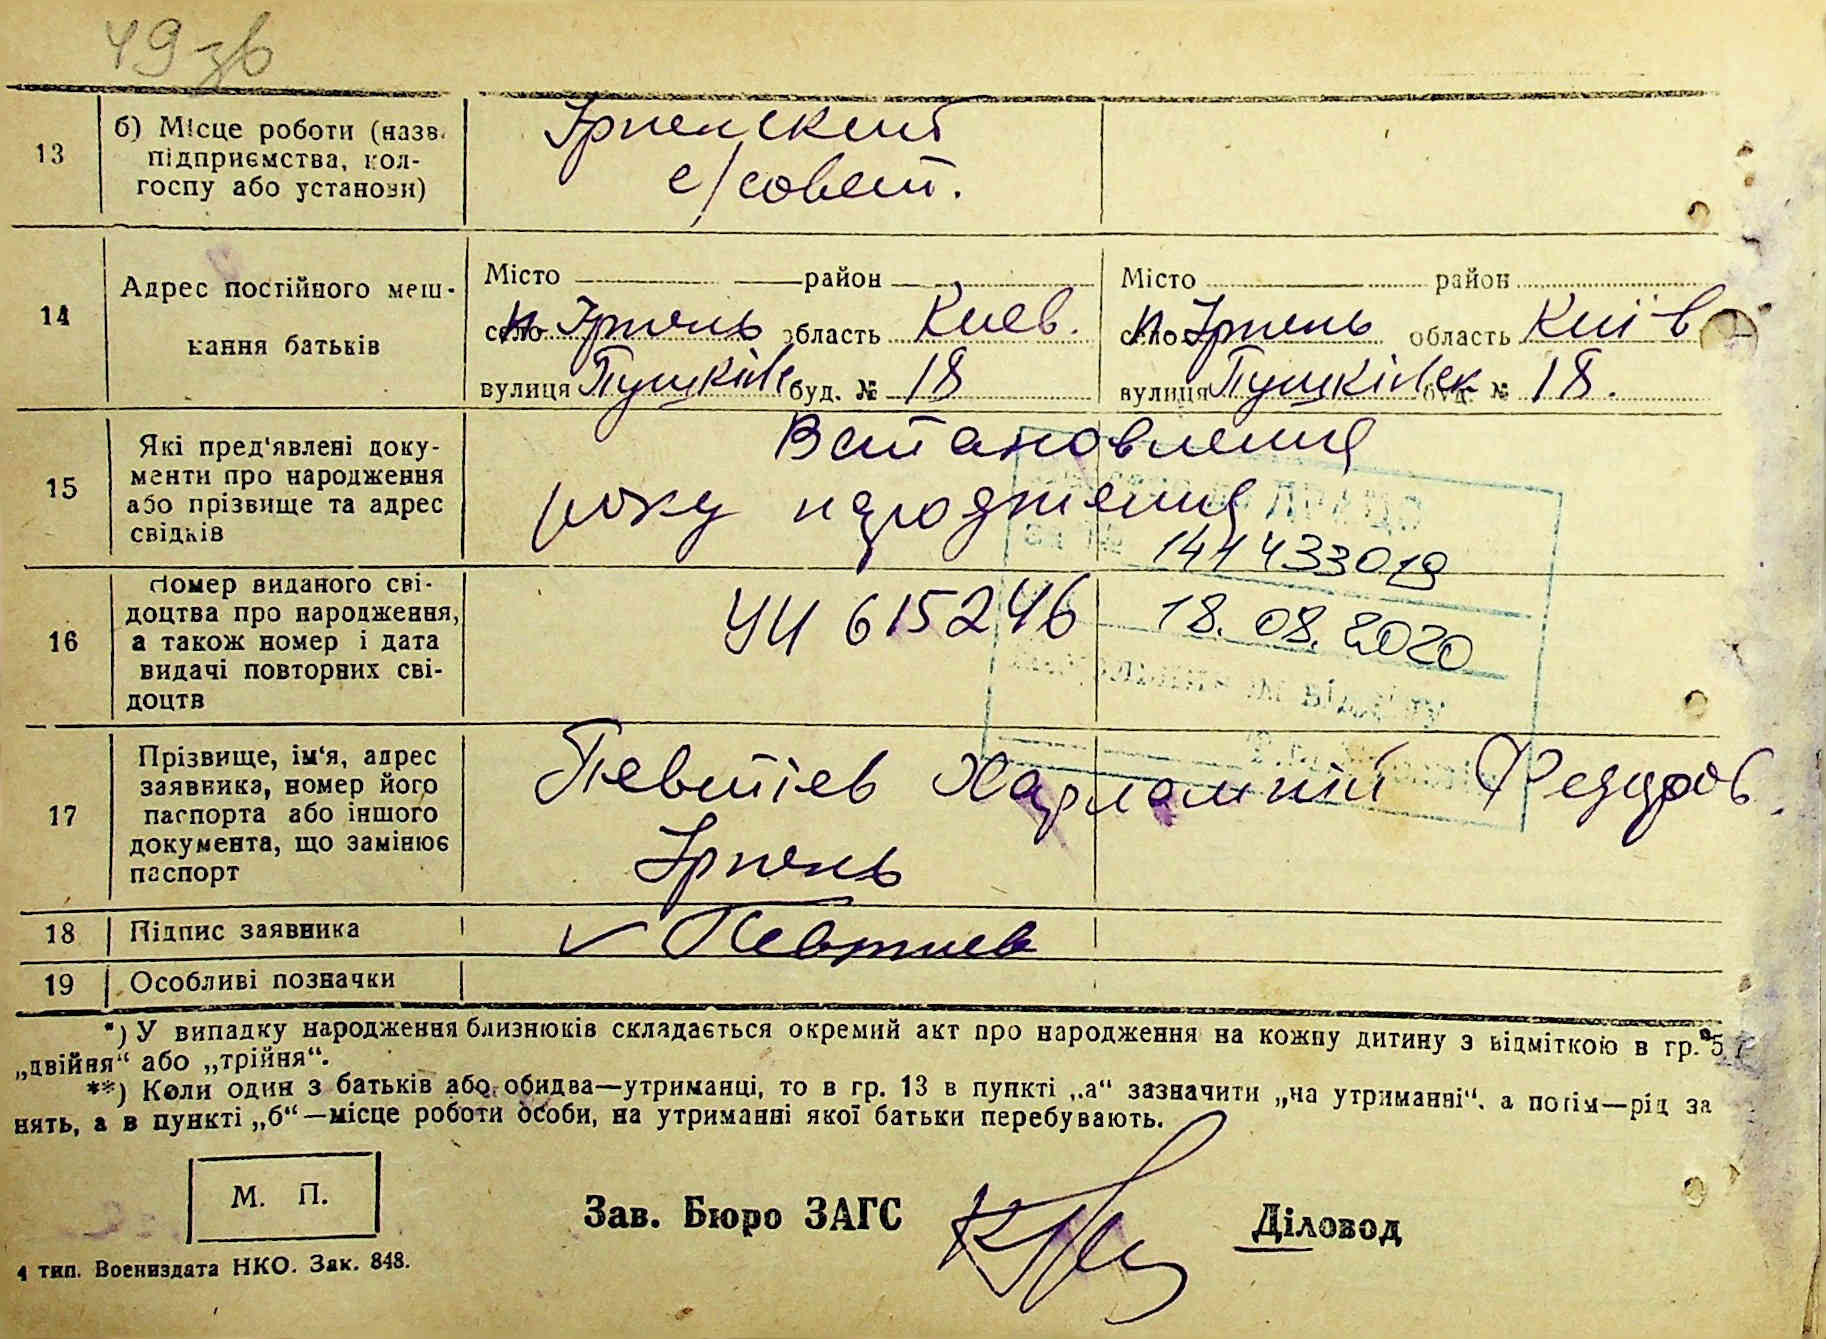 49 зв
13
б) Місце роботи (назв.
підприємства, кол-
госпу або установи)
Ірпенский
с/совет.
14
Адрес постійного меш-
кання батьків
Місто район
село п. Ірпень область Киев.
вулиця Пушкінс буд. № 18
Місто район
село п. Ірпень область Київ
вулиця Пушкінськ буд. № 18.
15
Які пред'явлені доку-
менти про народження
або прізвище та адрес
свідків
Встановлення
року народження
144433019
16
Номер виданого сві-
доцтва про народження,
а також номер і дата
видачі повторних сві-
доцтв
УЧ 615246
18.08.2020
17
Прізвище, ім'я, адрес
заявника, номер його
паспорта або іншого
документа, що замінює
паспорт
Певтієв Харлампій Федоров.
Ірпень
18
Підпис заявника
Певтиев
19
Особливі позначки
*) У випадку народження близнюків складається окремий акт про народження на кожну дитину з відміткою в гр. 5
„двійня“ або „трійня“.
**) Коли один з батьків або обидва—утриманці, то в гр. 13 в пункті „а“ зазначити „на утриманні“, а потім—рід за
нять, а в пункті „б“—місце роботи особи, на утриманні якої батьки перебувають.
М. П.
Зав. Бюро ЗАГС
Діловод
4 тип. Воениздата НКО. Зак. 848.